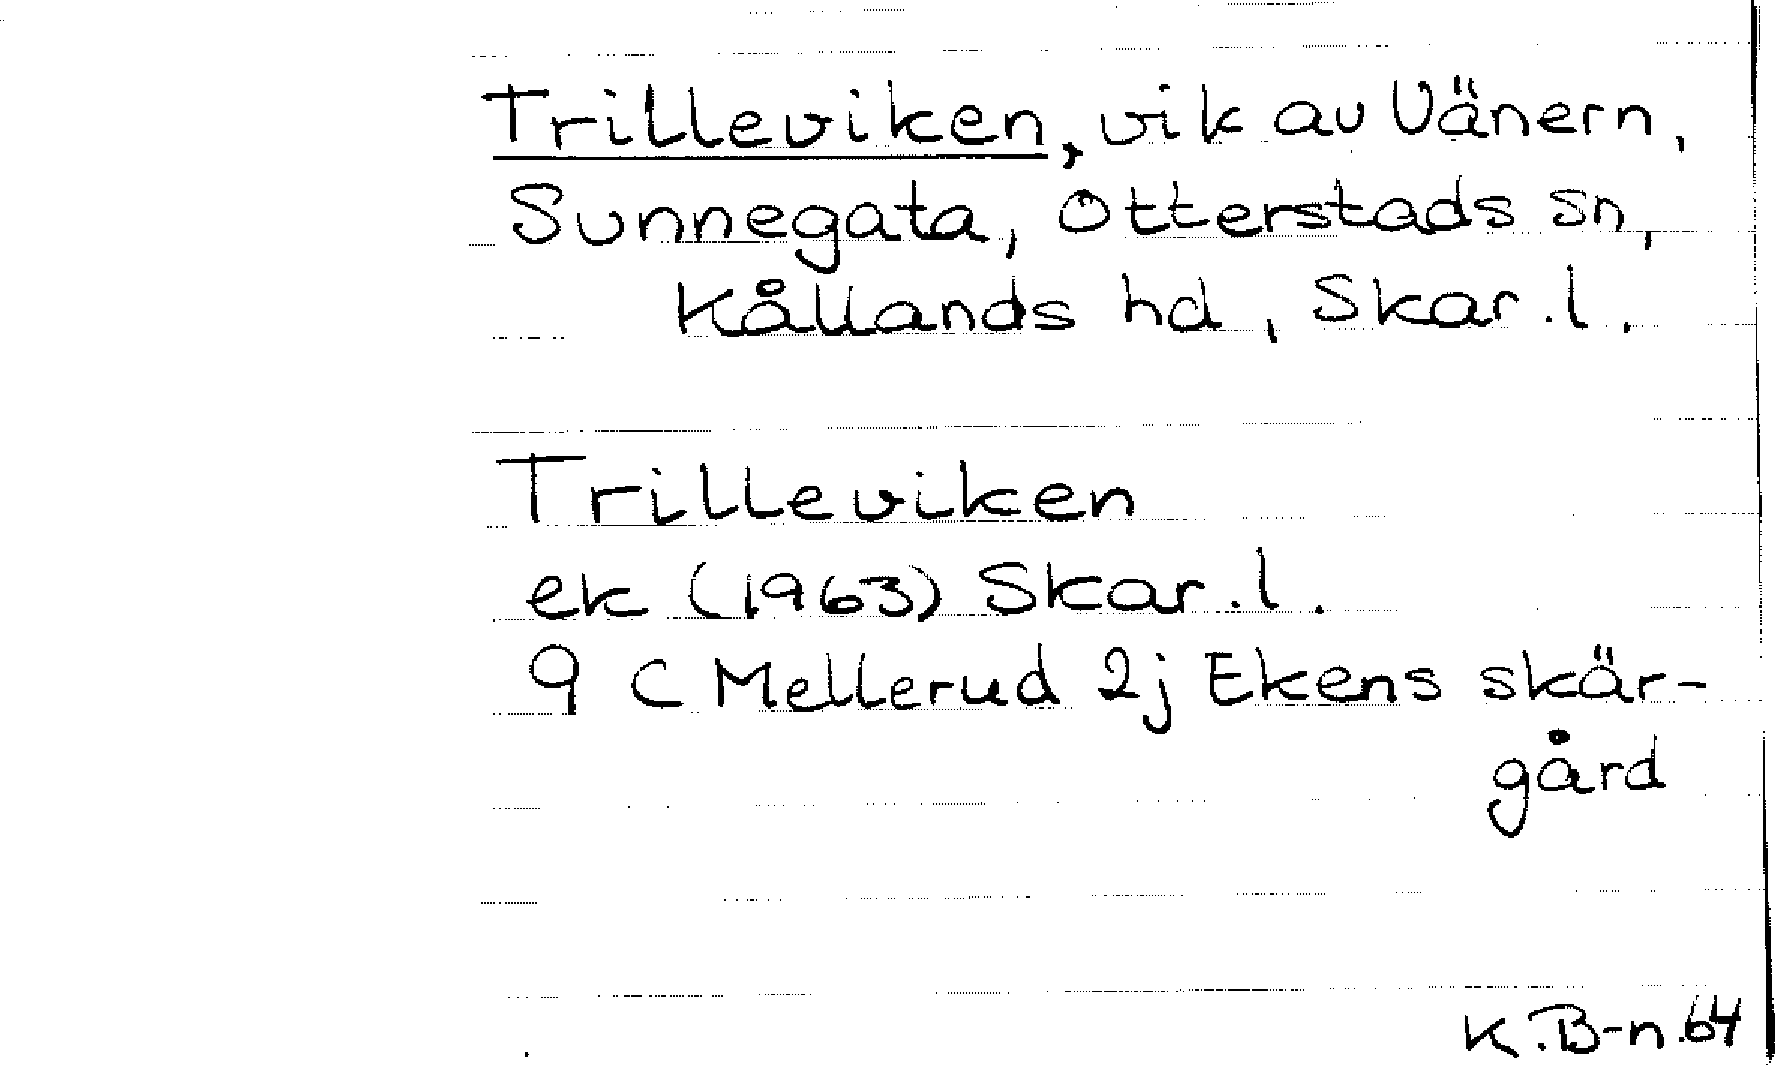 Trilleviken, vik av Vänern,
Sunnegata, Otterstads sn,
Kållands hd, Skar.l.
Trilleviken
ek (1963) Skar.l.
9 C Mellerud 2j Ekens skär-
gård
K.B-n.64